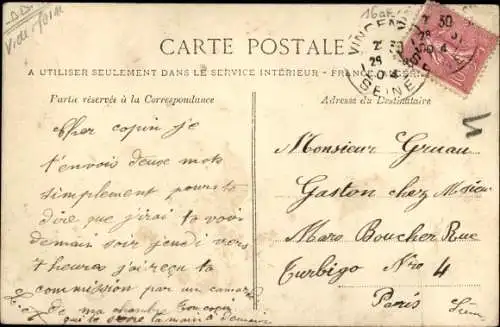 CARTE POSTALE
A UTILISER SEULEMENT DANS LE SERVICE INTÉRIEUR - FRANCE,
Partie réservée à la Correspondance
Adresse du Destinataire
VINCENNES
SEINE
Cher copin je
t'envois deux mots
simplement pour te
dire que j'irai te voir
demain soir jeudi vers
7 heures j'ai reçu ta
commission par un camar
de ma chambre
qui te serre la main à demain
Monsieur Gruau
Gaston chez Mr
Marc Boucher Rue
Turbigo Nro 4
Paris